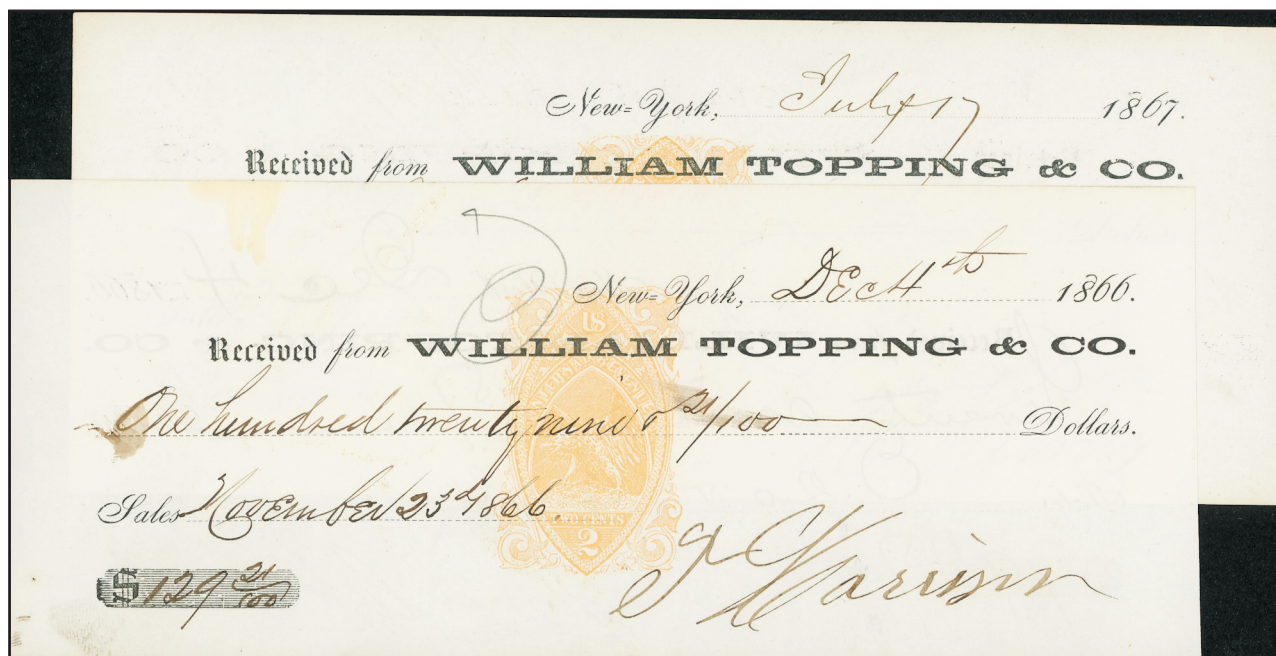 New=York, July 17 1867.
Received from WILLIAM TOPPING & CO.
New=York, Dec 4th 1866.
Received from WILLIAM TOPPING & CO.
US
INTERNAL REVENUE
One hundred twenty nine & 21/100 Dollars.
Sales November 23d 1866.
TWO CENTS
2
$ 129 21/100
J Harrison